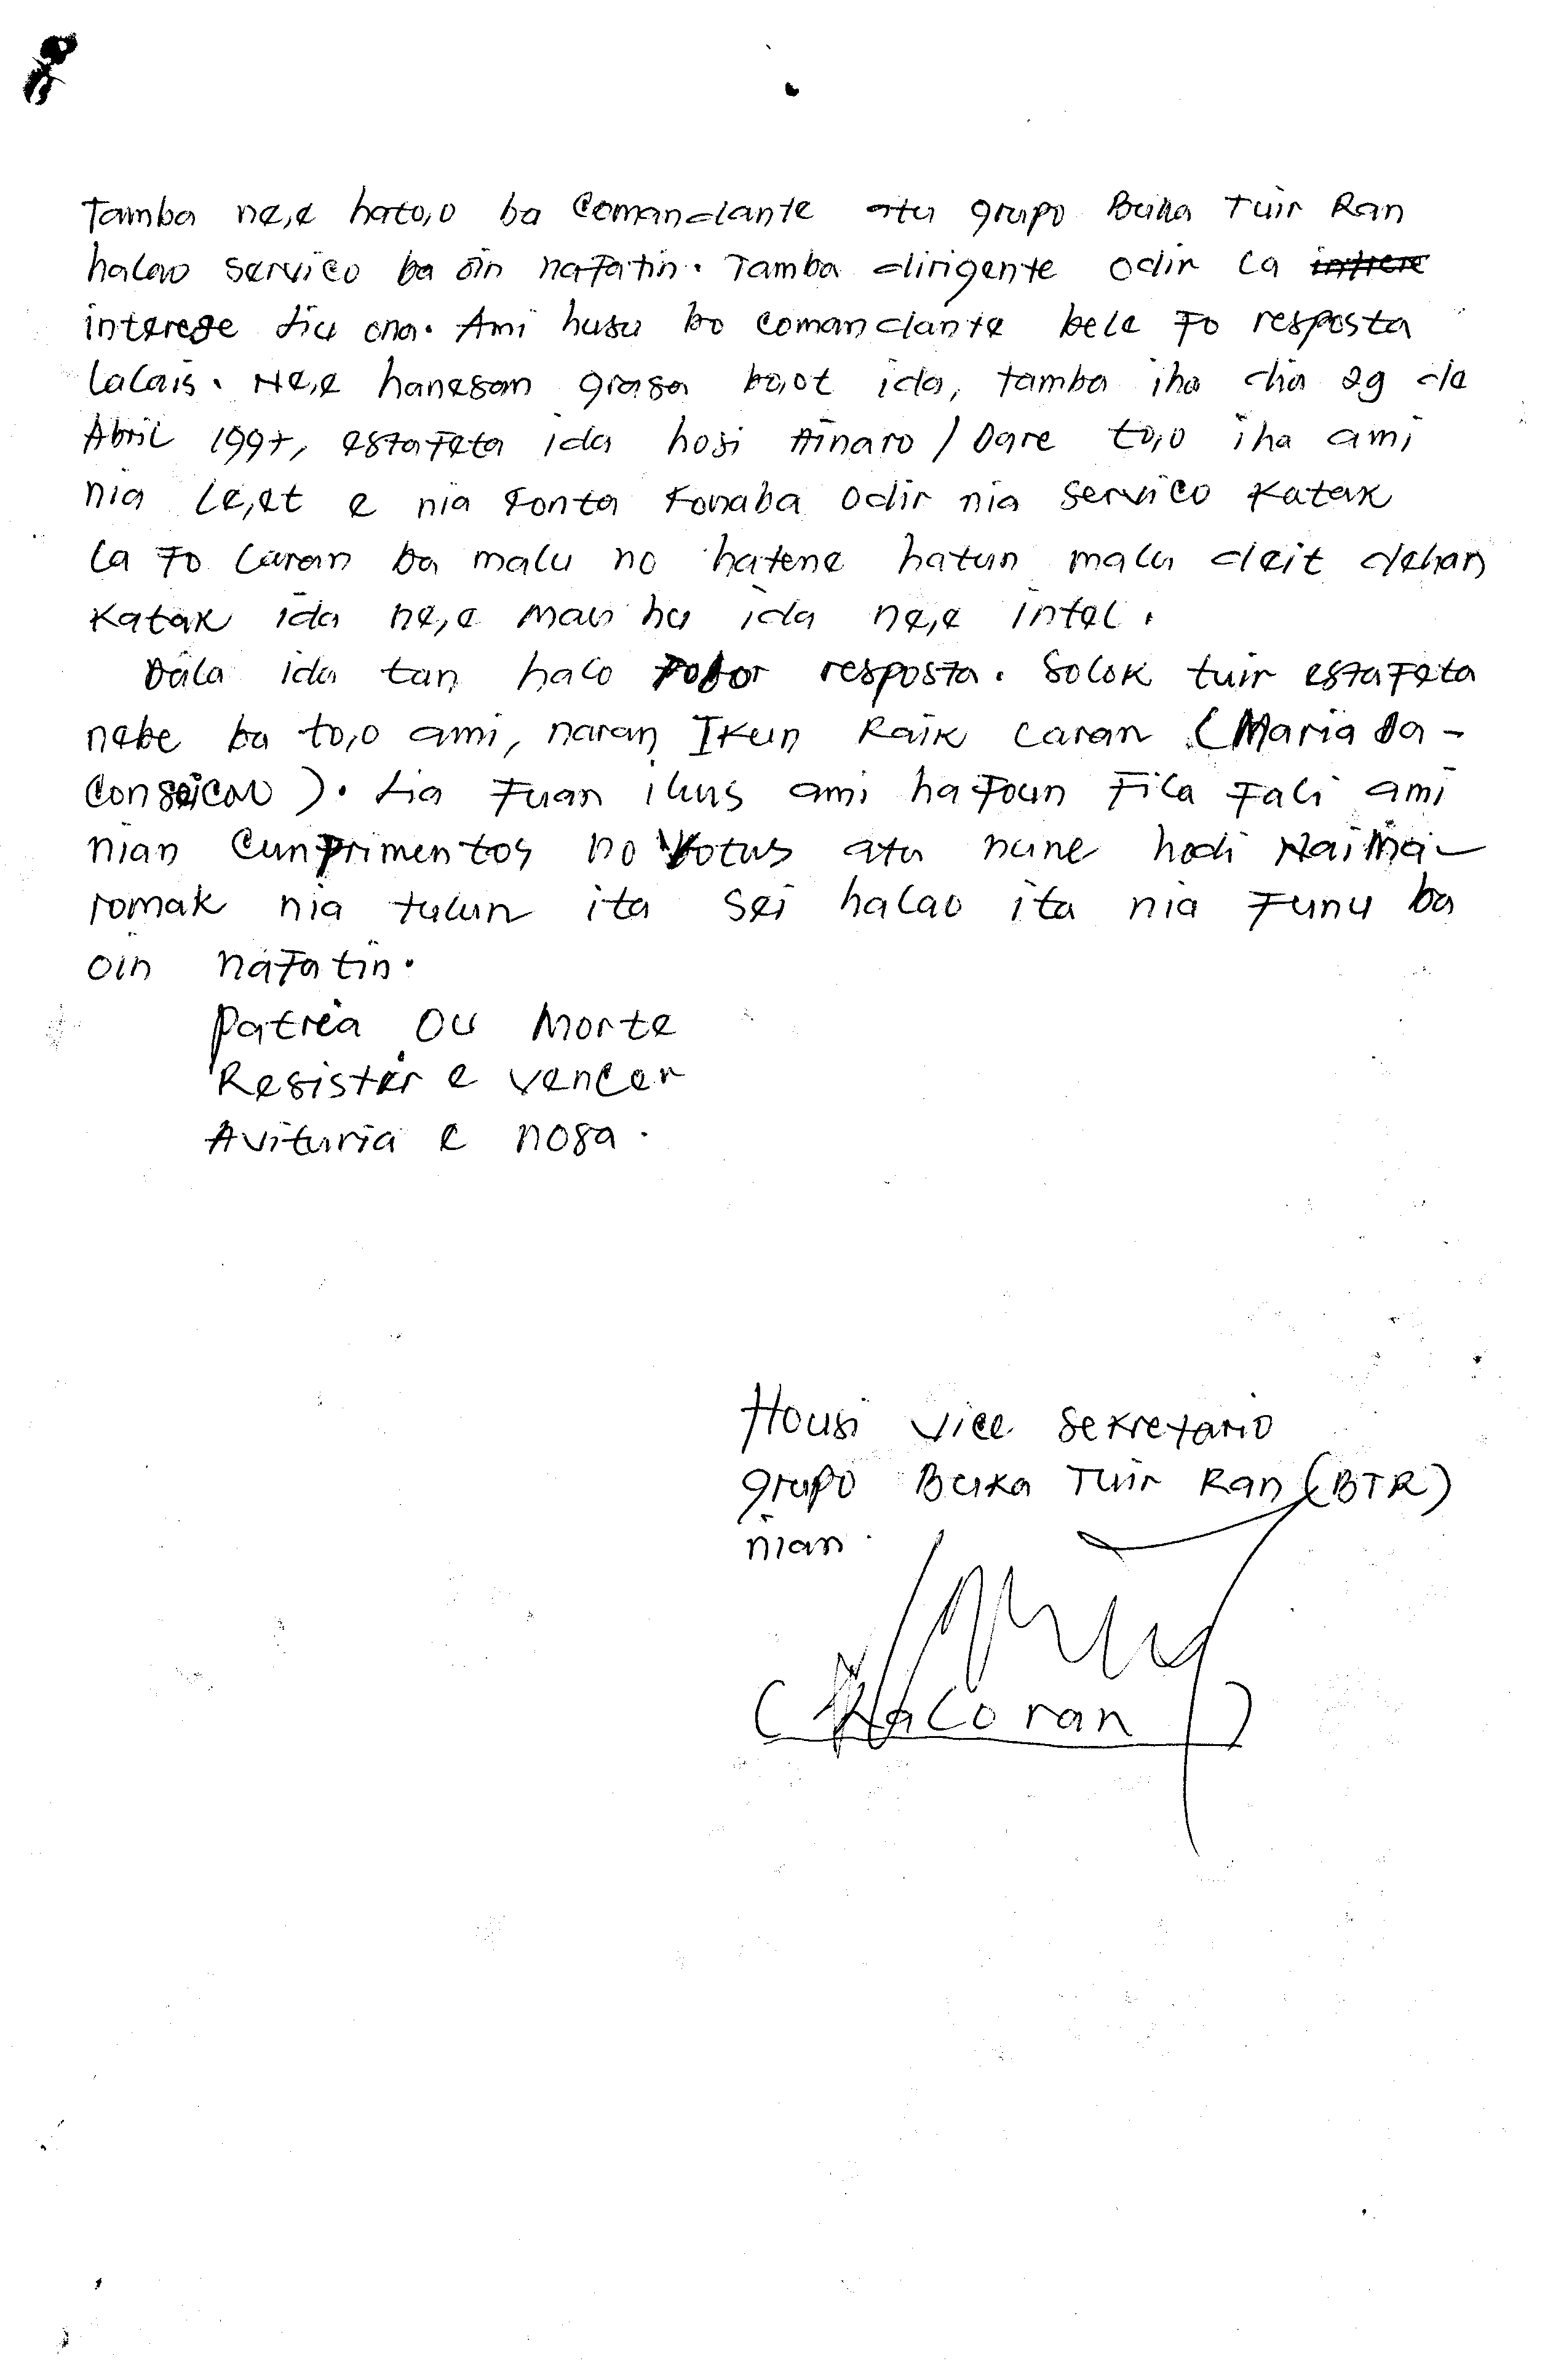 Tamba ne,e hato,o ba Comandante atu grupo Buka Tuir Ran
halao servico ba oin nafatin. Tamba dirigente odir la intrere
interese liu ona. Ami husu bo comandante bele fo resposta
lalais. Ne,e hanesan grasa bo,ot ida, tamba iha dia 29 de
Abril 1997, estafeta ida hosi Ainaro / Dare to,o iha ami
nia le,et e nia fonta fonaba odir nia servico katak
la fo laran ba malu no hatene hatun malu deit dehan
katak ida ne,e mau hu ida ne,e intel.
Dala ida tan halo favor resposta. Solok tuir estafeta
nebe ba to,o ami, naran Ikun Raik Laran (Maria da-
Conseicao). Lia fuan ikus ami hafoun fila fali ami
nian Cunprimentos no Votus atu nune hodi Naima-
romak nia tulun ita sei halao ita nia funu ba
oin nafatin.
Patrea ou Morte
Resister e vencer
Avituria e nosa.
Housi vice sekretario
grupo Buka Tuir Ran (BTR)
nian
(Kaloran)